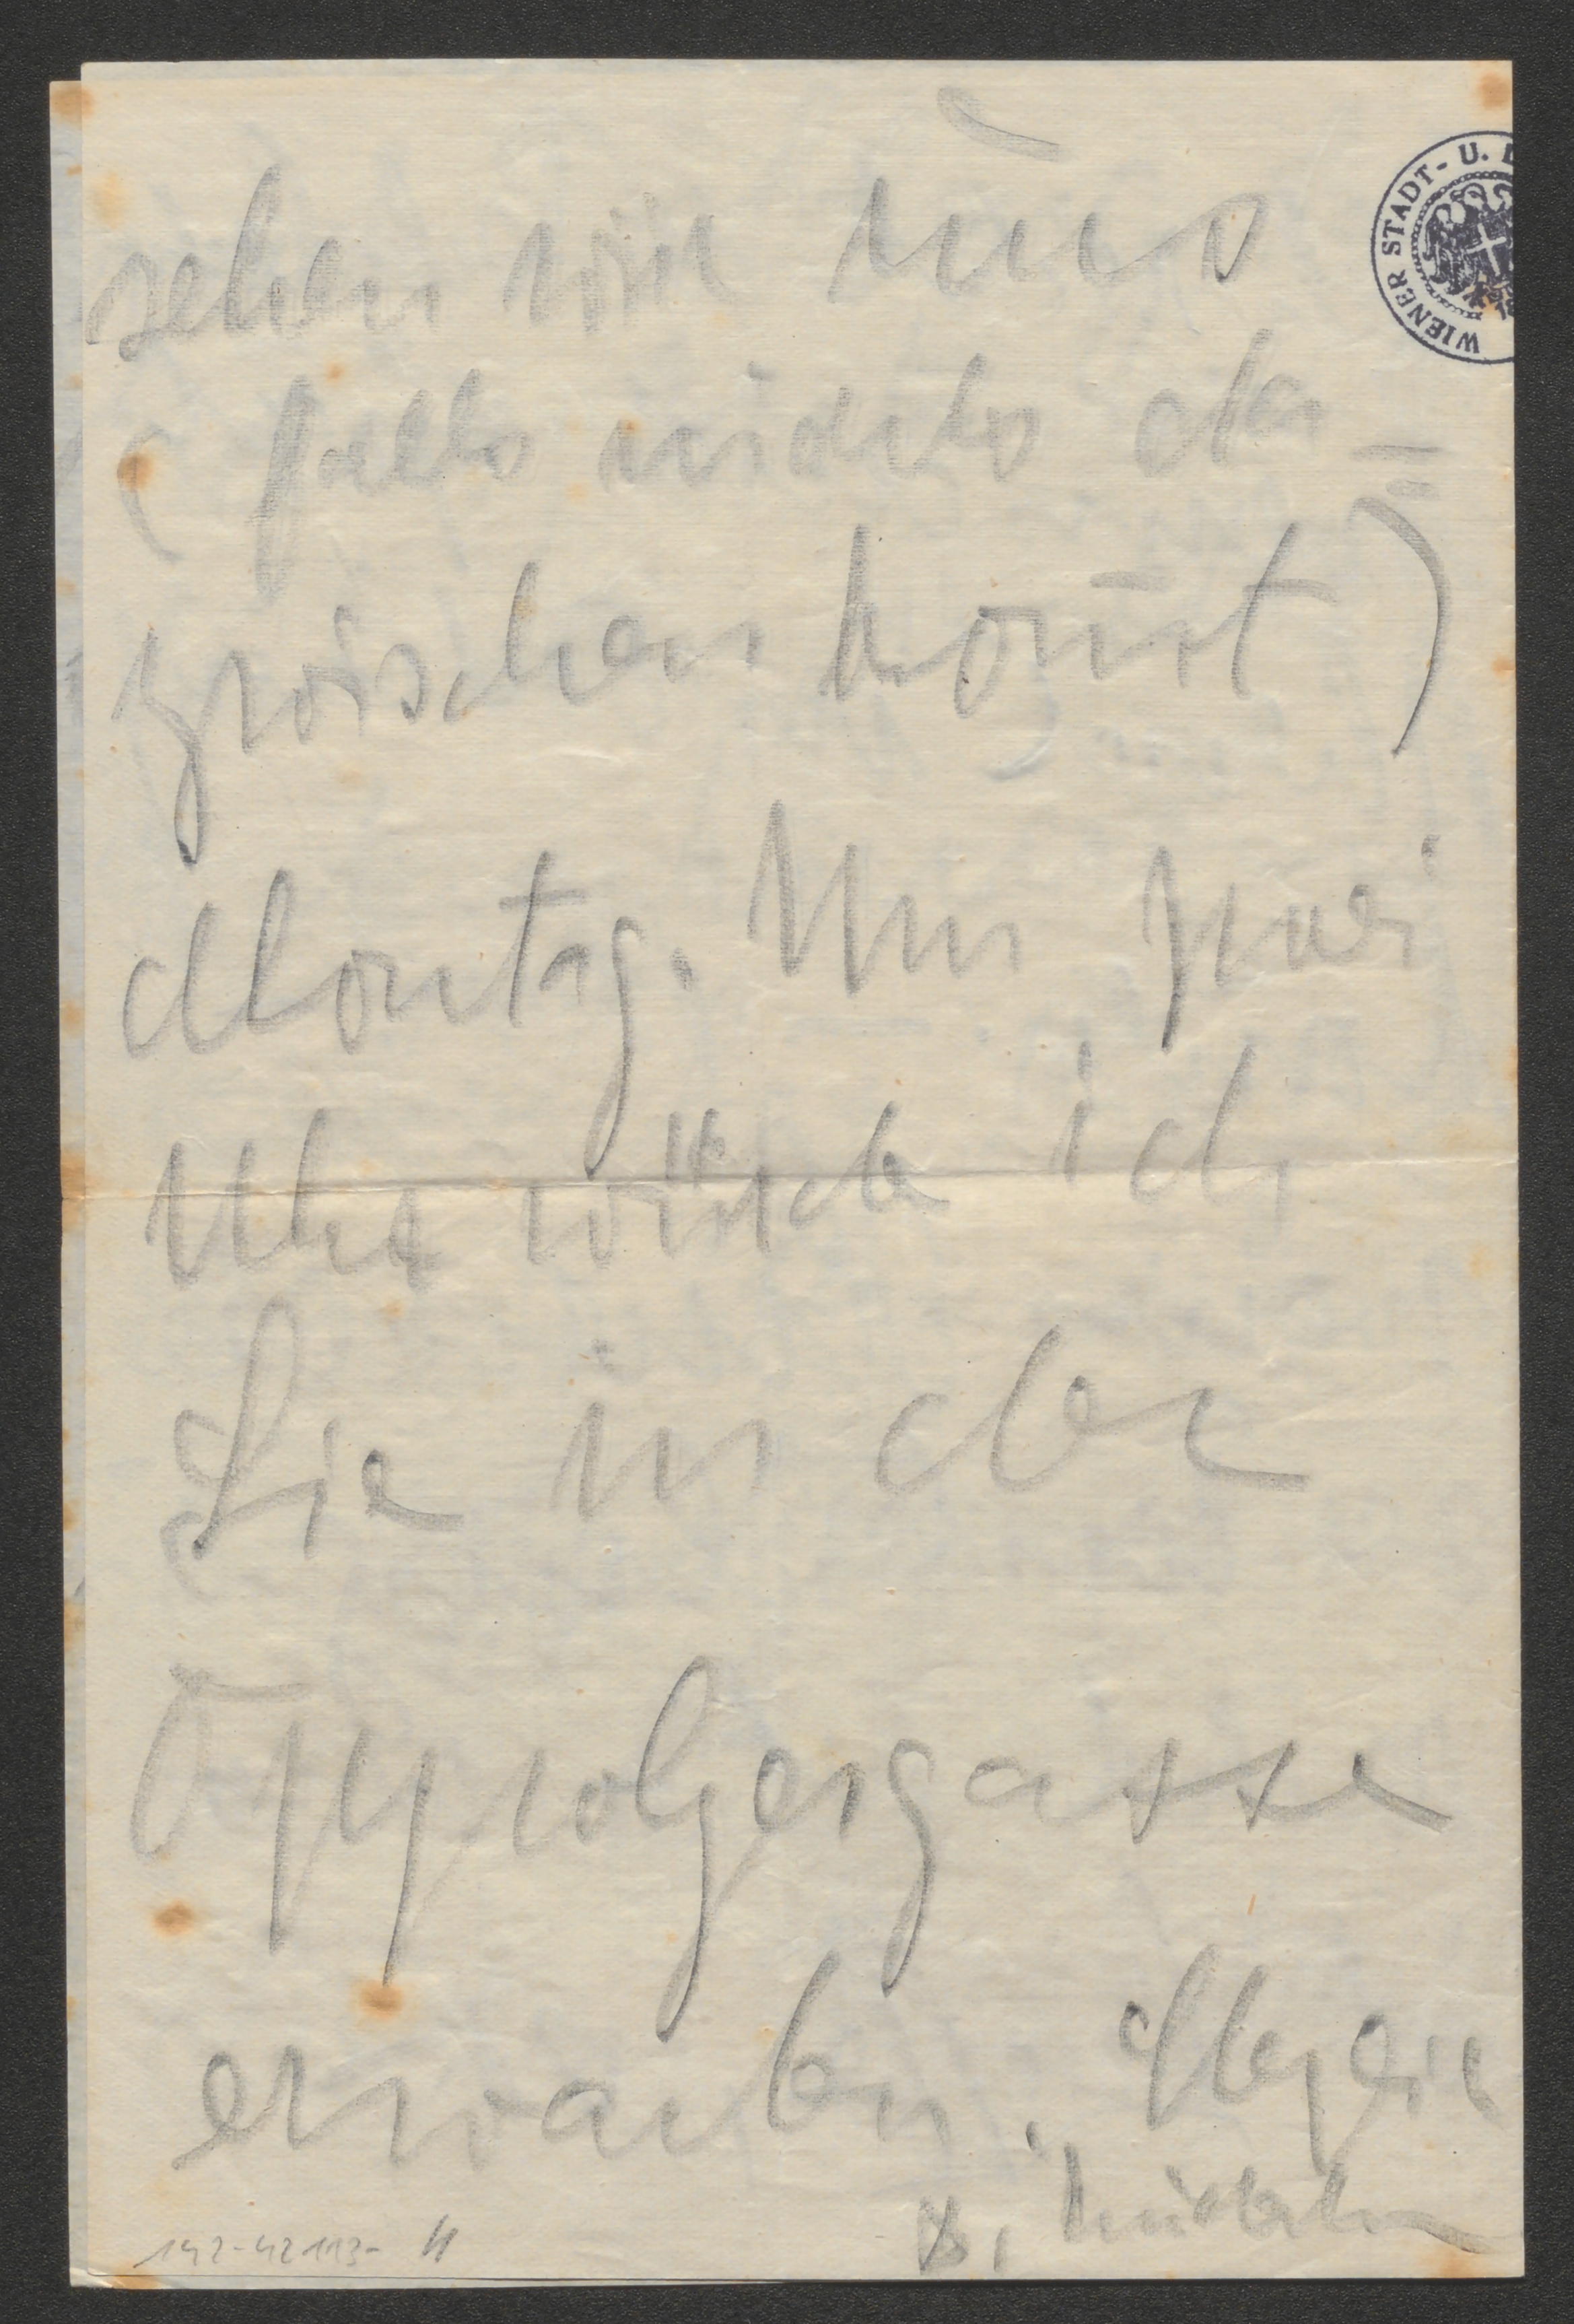 sehen wir uns
(falls nichts da=
zwischenkom̄t)
Montag. Um zwei
Uhr würde ich
Sie in der
Oppolzergasse
erwarten.
WIENER STADT- U.
142-42113- 4